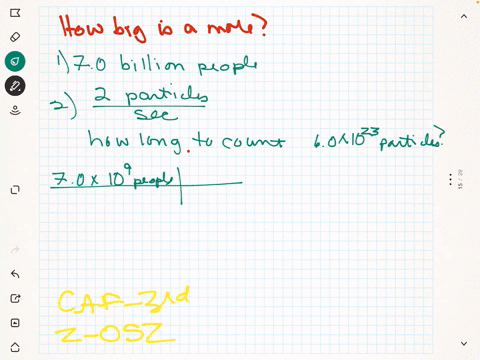 How big is a mole?
1) 7.0 billion people
2) 2 particles
sec
how long to count 6.0 x 10^23 particles?
7.0 x 10^9 people
CAF-3rd
2-052
15 / 20